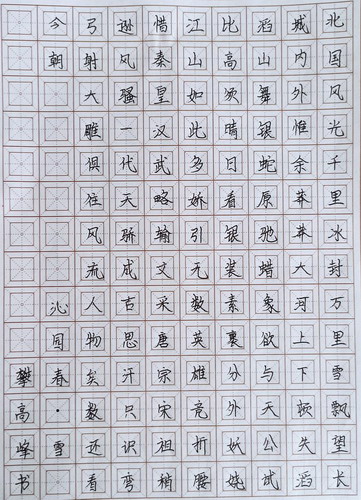 北国风光千里冰封万里雪飘望长
城内外惟余莽莽大河上下顿失滔
滔山舞银蛇原驰蜡象欲与天公试
比高须晴日看银装素裹分外妖娆
江山如此多娇引无数英雄竞折腰
惜秦皇汉武略输文采唐宗宋祖稍
逊风骚一代天骄成吉思汗只识弯
弓射大雕俱往风流人物矣数还看
今朝
沁园春·雪
攀高峰书